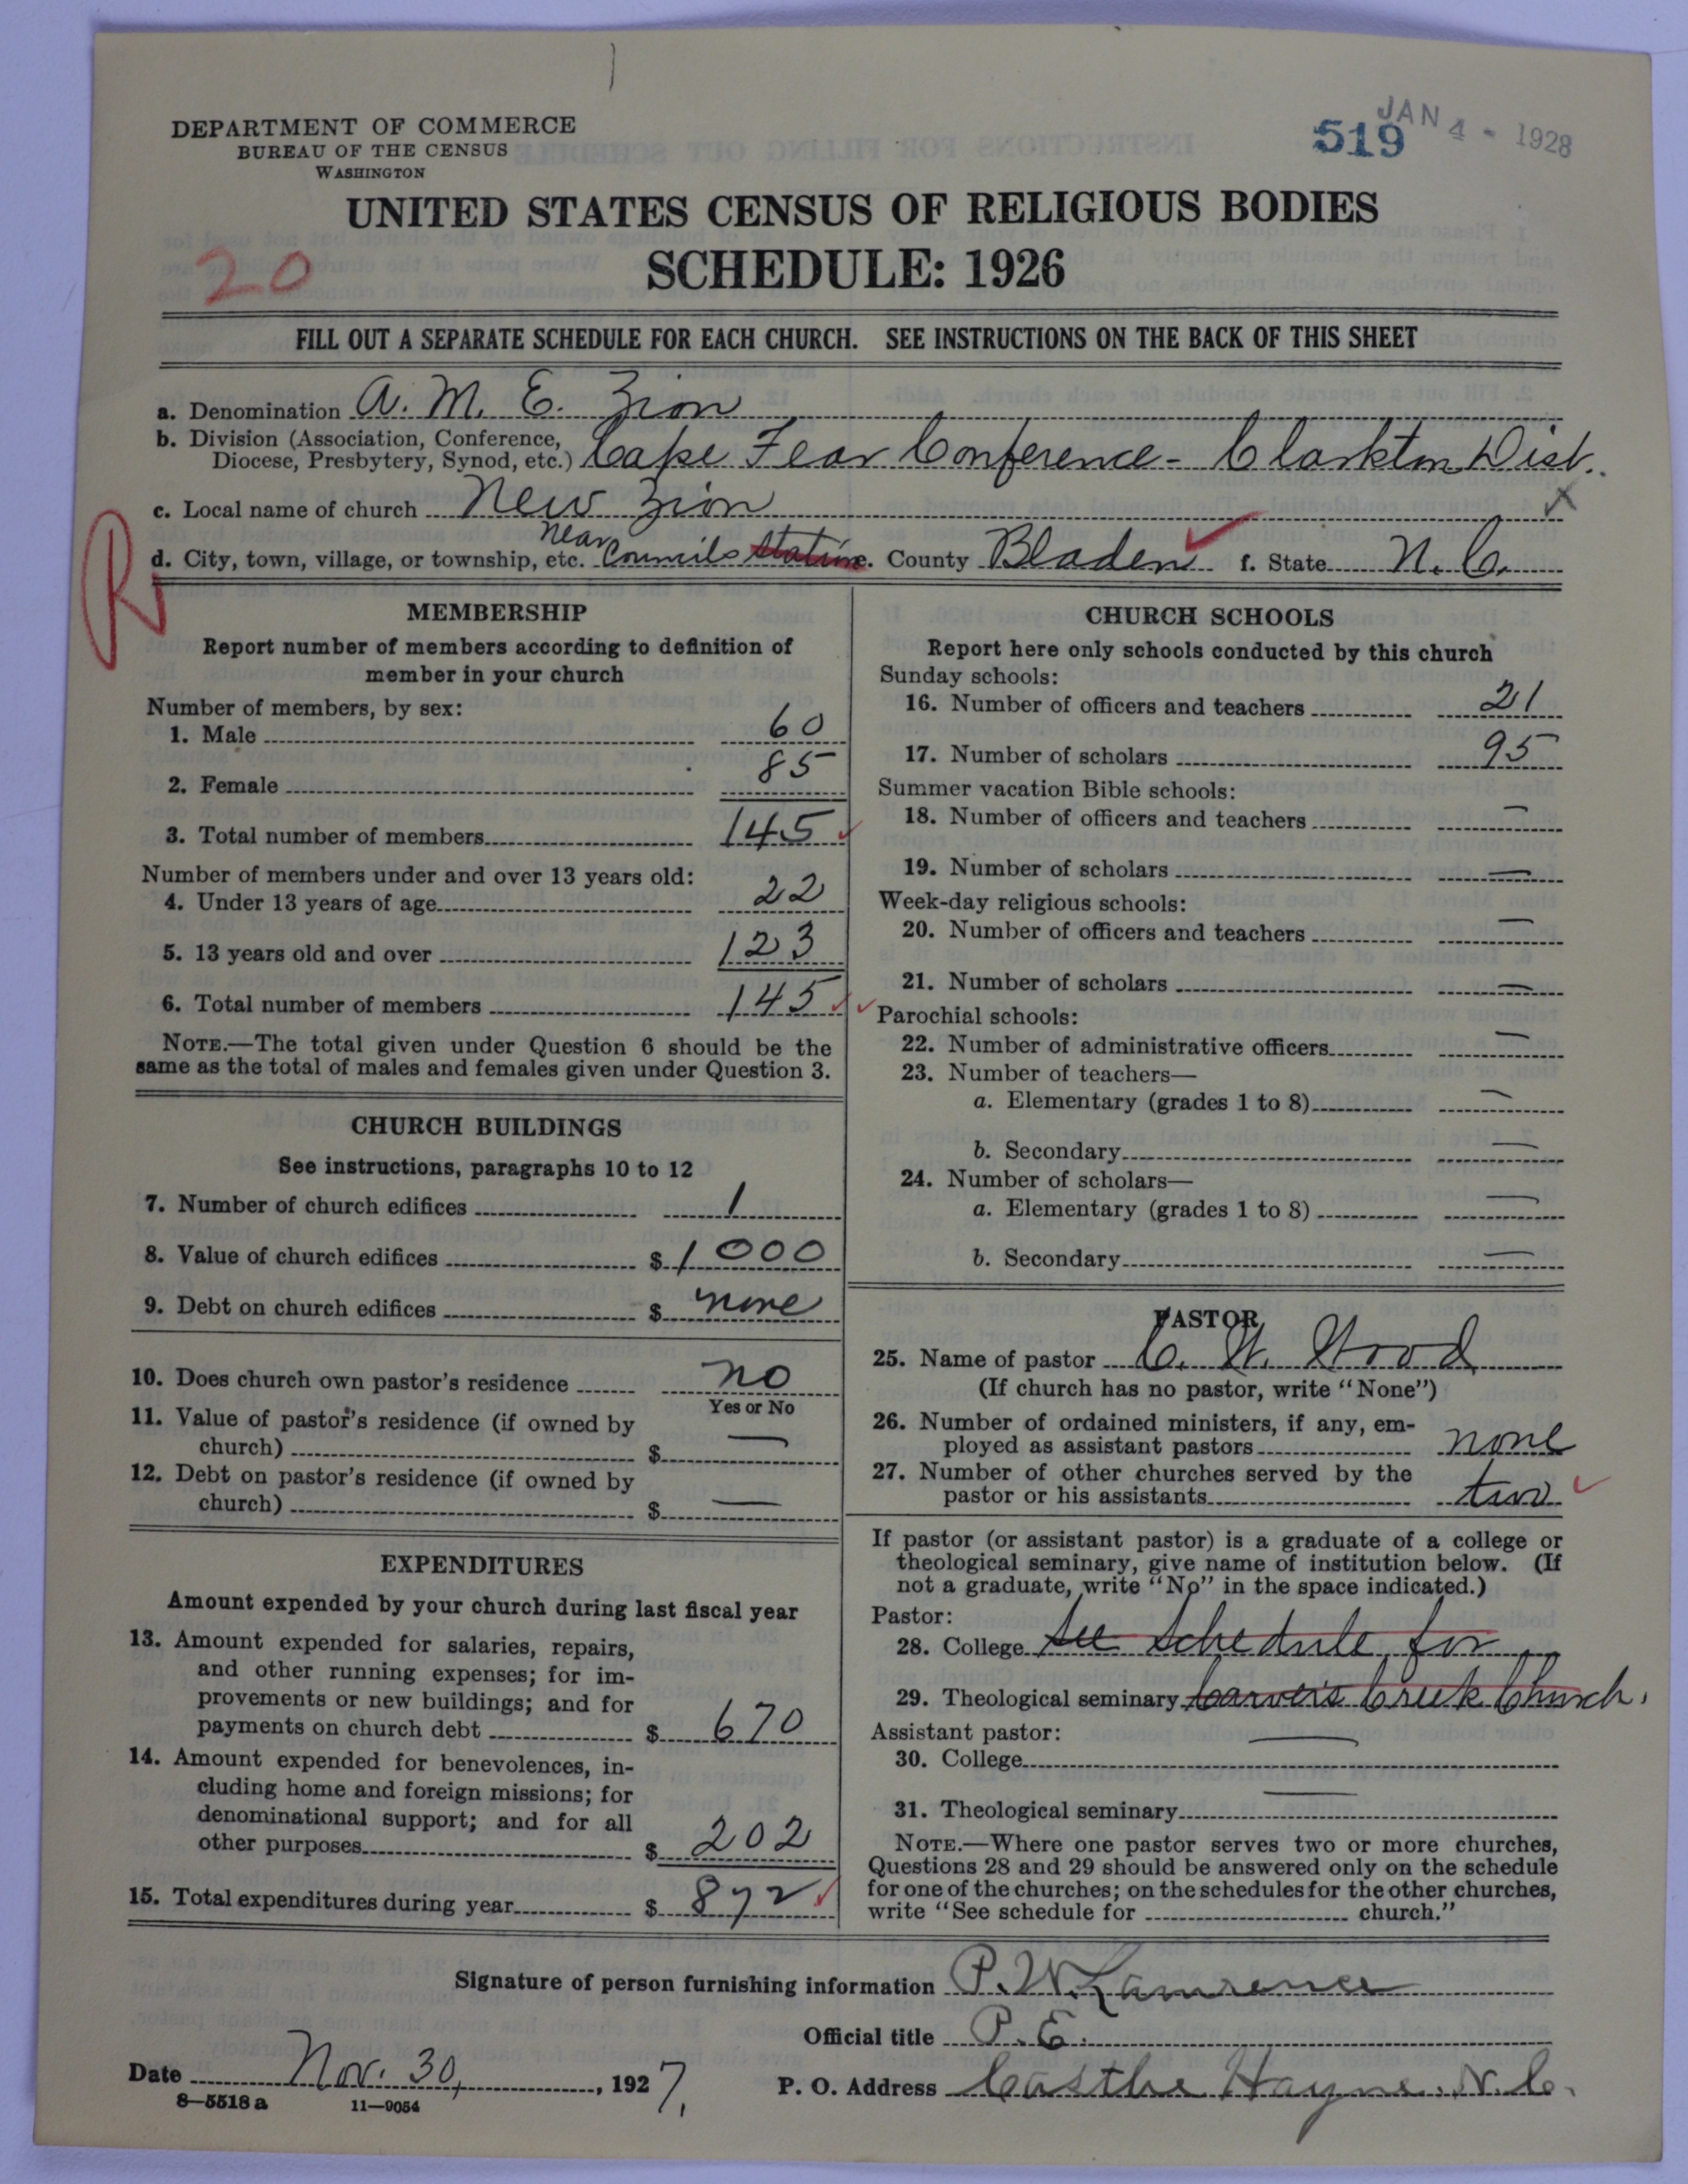 JAN 4 - 1928
519
DEPARTMENT OF COMMERCE
BUREAU OF THE CENSUS
WASHINGTON
UNITED STATES CENSUS OF RELIGIOUS BODIES
SCHEDULE: 1926
20
FILL OUT A SEPARATE SCHEDULE FOR EACH CHURCH. SEE INSTRUCTIONS ON THE BACK OF THIS SHEET
a. Denomination A. M. E. Zion
b. Division (Association, Conference, Diocese, Presbytery, Synod, etc.) Cape Fear Conference - Clarkton Dist.
c. Local name of church New Zion x
R
d. City, town, village, or township, etc. Near Councils Station e. County Bladen f. State N. C.
MEMBERSHIP
Report number of members according to definition of
member in your church
Number of members, by sex:
1. Male 60
2. Female 85
3. Total number of members 145
Number of members under and over 13 years old:
4. Under 13 years of age 22
5. 13 years old and over 123
6. Total number of members 145
NOTE.—The total given under Question 6 should be the
same as the total of males and females given under Question 3.
CHURCH BUILDINGS
See instructions, paragraphs 10 to 12
7. Number of church edifices 1
8. Value of church edifices $ 1000
9. Debt on church edifices $ none
10. Does church own pastor's residence no
Yes or No
11. Value of pastor's residence (if owned by
church) $ —
12. Debt on pastor's residence (if owned by
church) $ —
EXPENDITURES
Amount expended by your church during last fiscal year
13. Amount expended for salaries, repairs,
and other running expenses; for im-
provements or new buildings; and for
payments on church debt $ 670
14. Amount expended for benevolences, in-
cluding home and foreign missions; for
denominational support; and for all
other purposes $ 202
15. Total expenditures during year $ 872
CHURCH SCHOOLS
Report here only schools conducted by this church
Sunday schools:
16. Number of officers and teachers 21
17. Number of scholars 95
Summer vacation Bible schools:
18. Number of officers and teachers —
19. Number of scholars —
Week-day religious schools:
20. Number of officers and teachers —
21. Number of scholars —
Parochial schools:
22. Number of administrative officers —
23. Number of teachers—
a. Elementary (grades 1 to 8) —
b. Secondary —
24. Number of scholars—
a. Elementary (grades 1 to 8) —
b. Secondary —
PASTOR
25. Name of pastor C. W. Wood
(If church has no pastor, write "None")
26. Number of ordained ministers, if any, em-
ployed as assistant pastors none
27. Number of other churches served by the
pastor or his assistants two
If pastor (or assistant pastor) is a graduate of a college or
theological seminary, give name of institution below. (If
not a graduate, write "No" in the space indicated.)
Pastor:
28. College See Schedule for
29. Theological seminary Carver's Creek Church.
Assistant pastor:
30. College —
31. Theological seminary —
NOTE.—Where one pastor serves two or more churches,
Questions 28 and 29 should be answered only on the schedule
for one of the churches; on the schedules for the other churches,
write "See schedule for ---------- church."
Signature of person furnishing information P. W. Lawrence
Official title P. E.
Date Nov. 30, 1927.
P. O. Address Casthe Hayne, N. C.
8—5518 a 11—9054